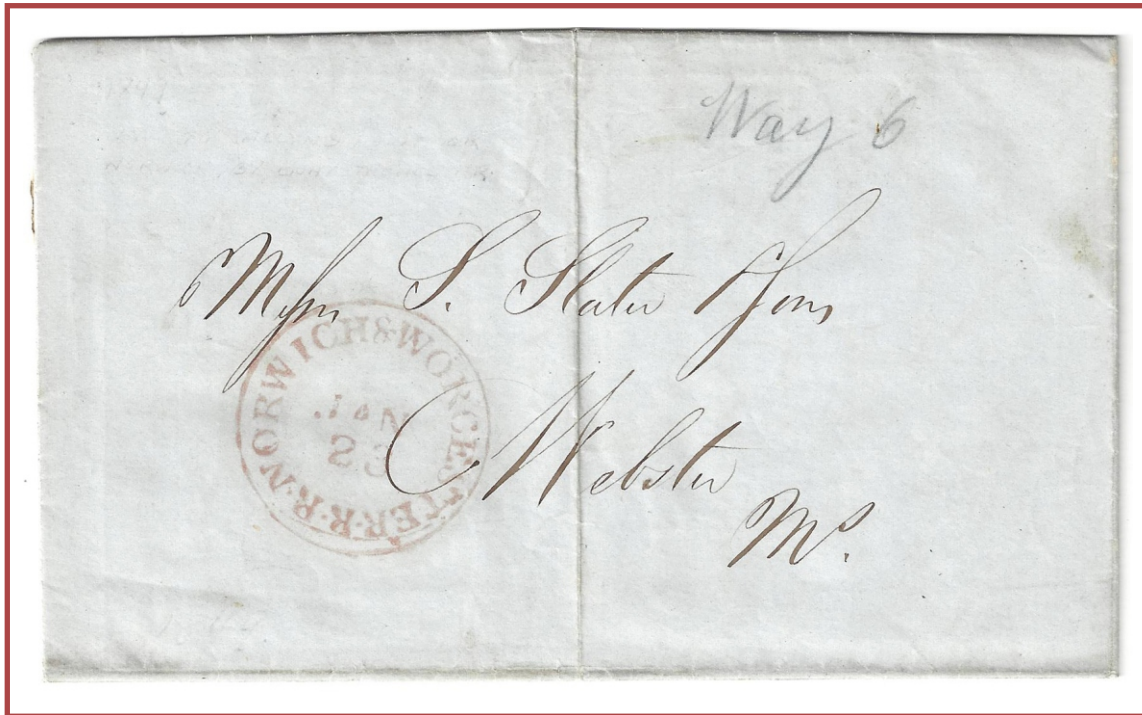 Way 6
Messrs S. Slater & Sons
Webster
Ms.
NORWICH & WORCESTER·R·R·
JAN
23